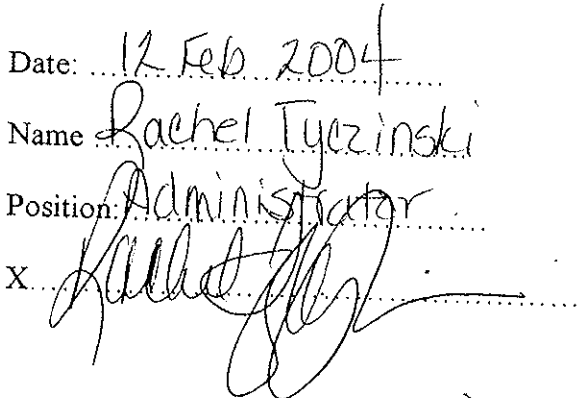 Date: 12 Feb 2004
Name Rachel Tyczinski
Position: Administrator
X Rachel